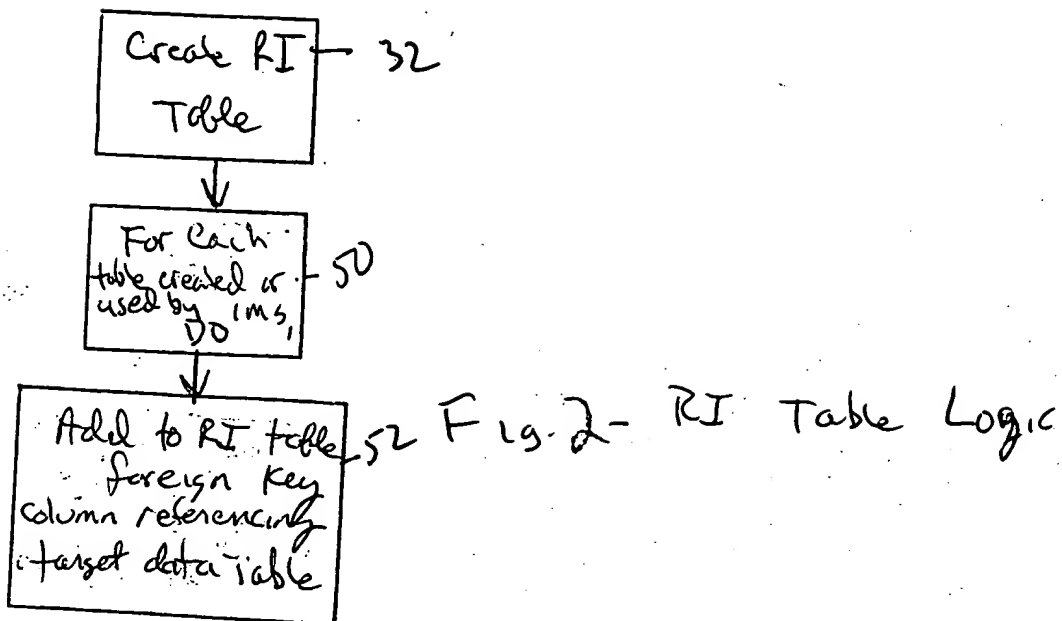 Create RI 32
Table
For Each
table created or 50
used by IMS,
DO
Add to RI table 52
foreign key
column referencing
target data table
Fig. 2- RI Table Logic